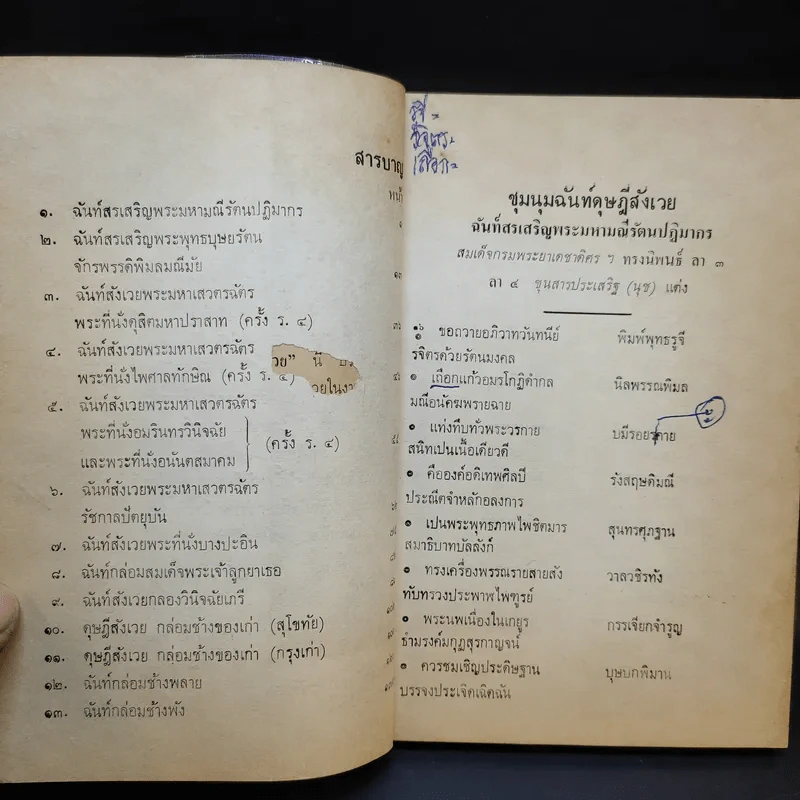 สารบาญ
หน้า
๑. ฉันท์สรเสริญพระมหามณีรัตนปฏิมากร
๒. ฉันท์สรเสริญพระพุทธบุษยรัตน
จักรพรรดิพิมลมณีมัย
๓. ฉันท์สังเวยพระมหาเสวตรฉัตร
พระที่นั่งดุสิตมหาปราสาท (ครั้ง ร. ๔)
๔. ฉันท์สังเวยพระมหาเสวตรฉัตร
พระที่นั่งไพศาลทักษิณ (ครั้ง ร. ๔)
๕. ฉันท์สังเวยพระมหาเสวตรฉัตร
พระที่นั่งอมรินทรวินิจฉัย
และพระที่นั่งอนันตสมาคม
(ครั้ง ร. ๔)
๖. ฉันท์สังเวยพระมหาเสวตรฉัตร
รัชกาลปัตยุบัน
๗. ฉันท์สังเวยพระที่นั่งบางปะอิน
๘. ฉันท์กล่อมสมเด็จพระเจ้าลูกยาเธอ
๙. ฉันท์สังเวยกลองวินิจฉัยเภรี
๑๐. ดุษฎีสังเวย กล่อมช้างของเก่า (สุโขทัย)
๑๑. ดุษฎีสังเวย กล่อมช้างของเก่า (กรุงเก่า)
๑๒. ฉันท์กล่อมช้างพลาย
๑๓. ฉันท์กล่อมช้างพัง
ชุมนุมฉันท์ดุษฎีสังเวย
ฉันท์สรเสริญพระมหามณีรัตนปฏิมากร
สมเด็จกรมพระยาเดชาดิศร ฯ ทรงนิพนธ์ ลา ๓
ลา ๔ ขุนสารประเสริฐ (นุช) แต่ง
๑๖ ขอถวายอภิวาทวันทนีย์ พิมพ์พุทธรูจี
รจิตรด้วยรัตนมงคล
๑ เถือกแก้วอมรโกฏิดำกล นิลพรรณพิมล
มณีอนัคฆพรายฉาย
๑ แท่งทึบทั่วพระวรกาย บมีรอยรคาย
สนิทเปนเนื้อเดียวดี
๑ คือองค์อดิเทพศิลปี รังสฤษดิมณี
ประณีตจำหลักอลงการ
๑ เปนพระพุทธภาพไพชิตมาร สุนทรศุภฐาน
สมาธิบาทบัลลังก์
๑ ทรงเครื่องพรรณรายสายสัง วาลวชิรทัง
ทับทรวงประพาฬไพฑูรย์
๑ พระนพเนื่องในเกยูร กรรเจียกจำรูญ
ธำมรงค์มกุฎสุรกาญจน์
๑ ควรชมเชิญประดิษฐาน บุษบกพิมาน
บรรจงประเจิดเฉิดฉัน